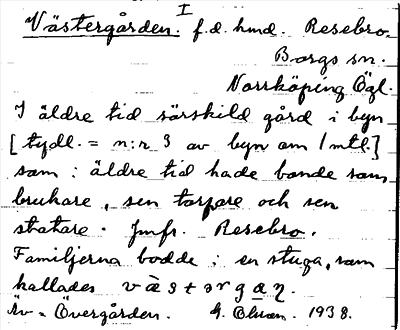 I
Västergården. f.d. hmd. Resebro.
Borgs sn.
Norrköping Ögl.
I äldre tid särskild gård i byn
[tydl. = n:r 3 av byn om 1 mtl.]
som i äldre tid hade bonde som
brukare, sen torpare och sen
statare. Jmfr. Resebro.
Familjerna bodde i en stuga, som
kallades
Äv = Övergården. 1938.